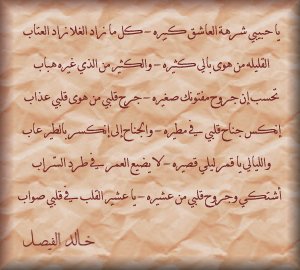 يا حبيبي شرهة العاشق كبيره - كل ما زاد الغلا زاد العتاب
القليله من هوى بالي كثيره - والكثير من الذي غيره هباب
تحسب إن جروح مفتونك صغيره - جرح قلبي من هوى قلبي عذاب
إنكسر جناح قلبي في مطيره - والجناح إلى إنكسر بالطير عاب
والليالي يا قمر ليلي قصيره - لا يضيع العمر في طرد السراب
أشتكي وجروح قلبي من عشيره - يا عشير القلب في قلبي صواب
خالد الفيصل